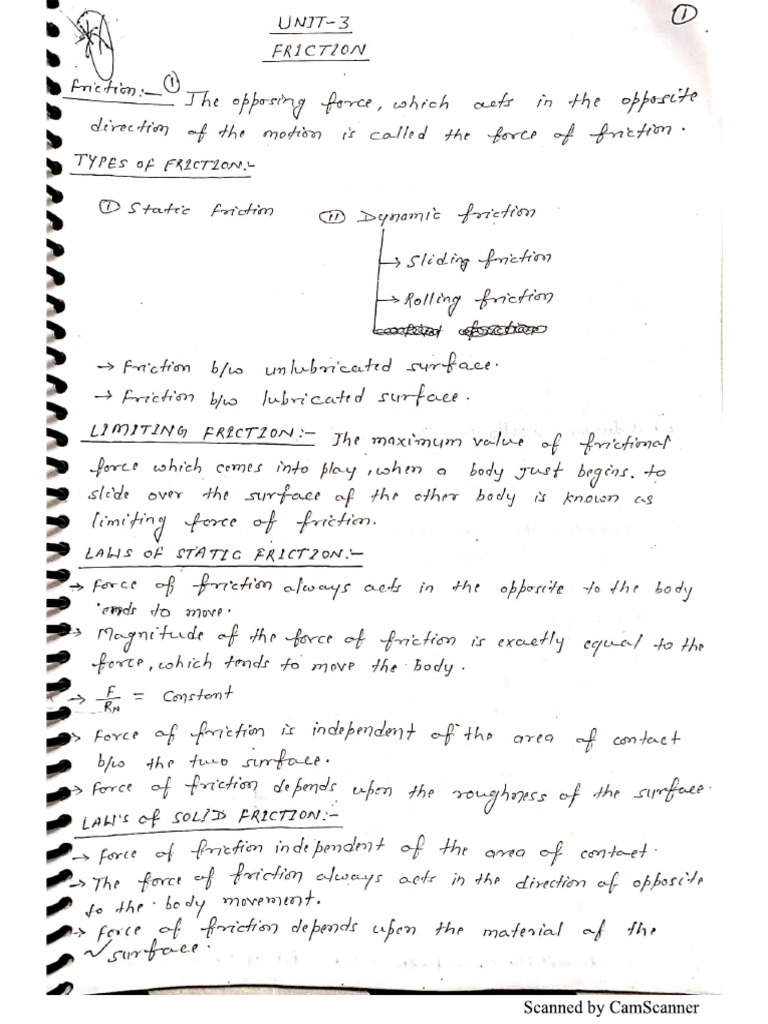 ①
UNIT-3
FRICTION
Friction:- ① The opposing force, which acts in the opposite
direction of the motion is called the force of friction.
TYPES OF FRICTION:-
① Static friction ⑪ Dynamic friction
→ Sliding friction
→ Rolling friction
→ Friction b/w unlubricated surface.
→ Friction b/w lubricated surface.
LIMITING FRICTION:- The maximum value of frictional
force which comes into play, when a body just begins. to
slide over the surface of the other body is known as
limiting force of friction.
LAWS OF STATIC FRICTION:-
→ Force of friction always acts in the opposite to the body
ends to move.
→ Magnitude of the force of friction is exactly equal to the
force, which tends to move the body.
→ F/RN = Constant
→ Force of friction is independent of the area of contact
b/w the two surface.
→ Force of friction depends upon the roughness of the surface.
LAW'S of SOLID FRICTION:-
→ Force of friction independent of the area of contact.
→ The force of friction always acts in the direction of opposite
to the body movement.
→ Force of friction depends upon the material of the
surface.
Scanned by CamScanner